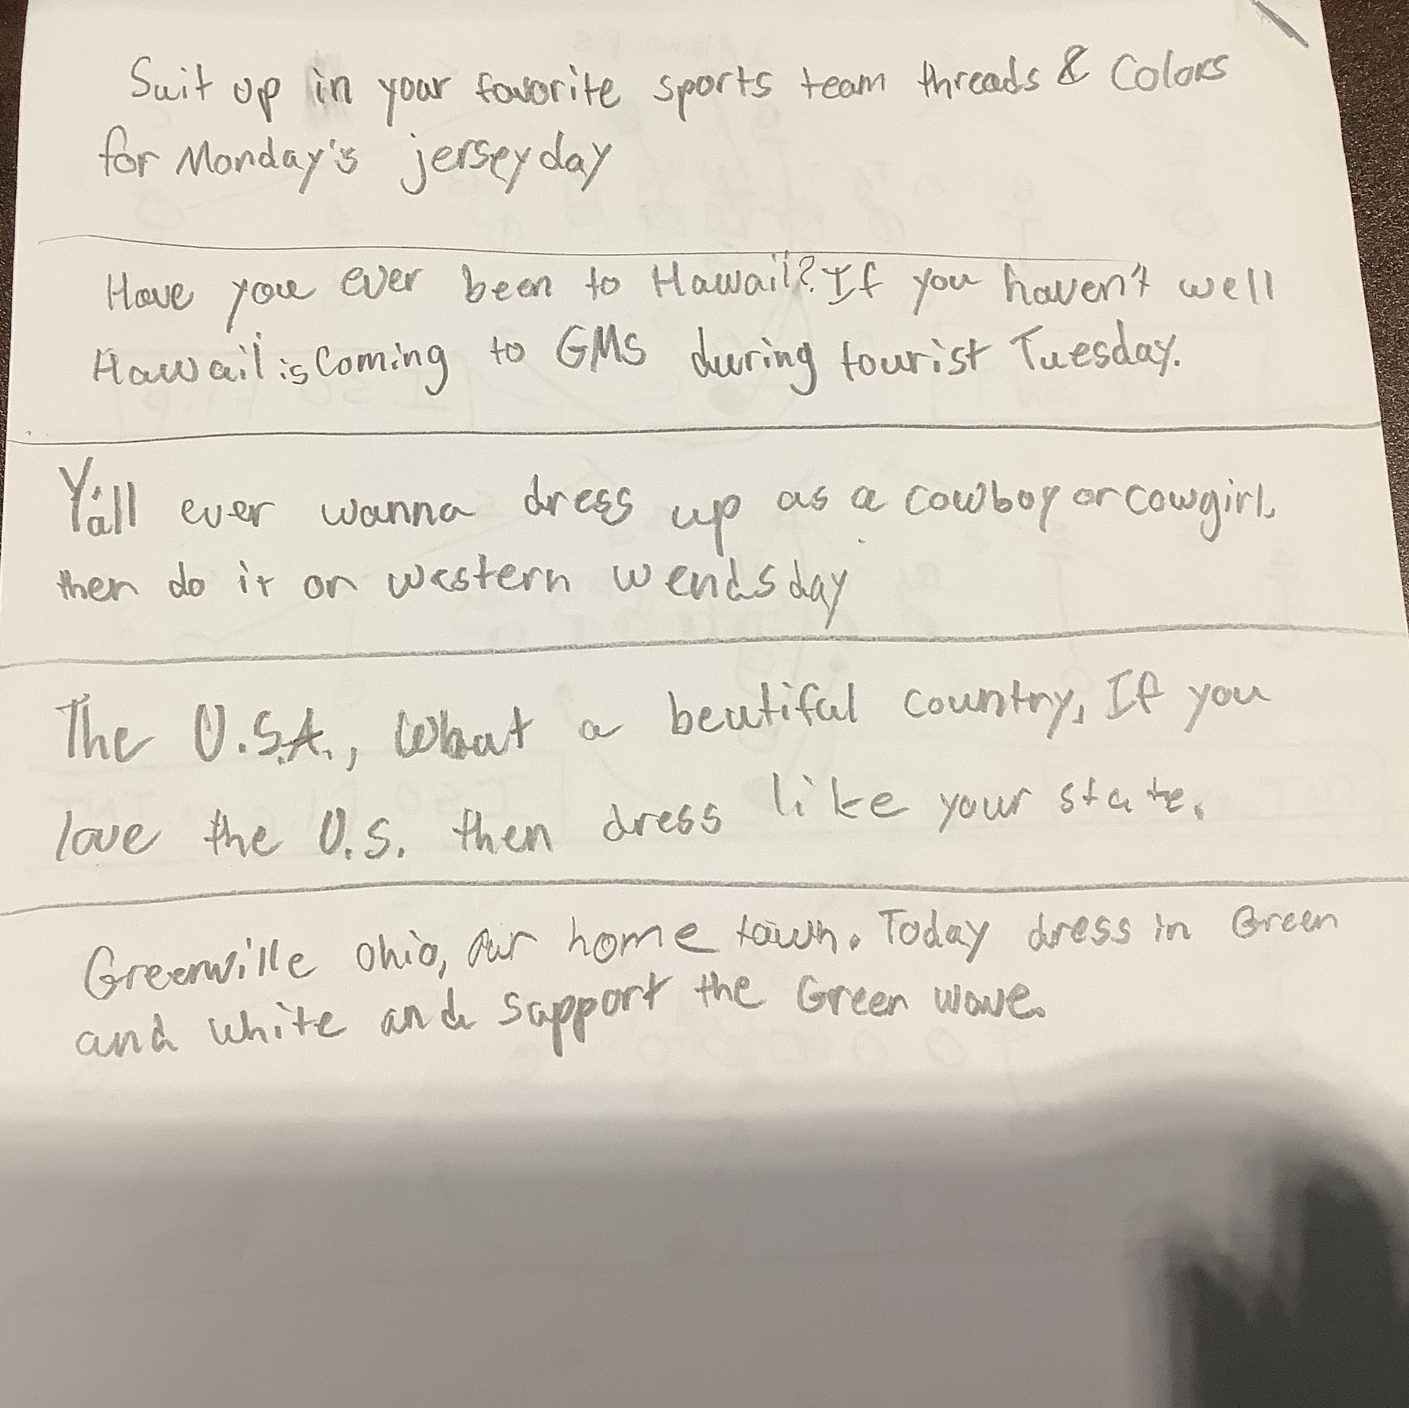 Suit up in your favorite sports team threads & Colors
for Monday's jersey day
Have you ever been to Hawaii? If you haven't well
Hawaii is coming to GMS during tourist Tuesday.
Y'all ever wanna dress up as a cowboy or cowgirl,
then do it on western wendsday
The U.S.A., What a beutiful country, If you
love the U.S. then dress like your state.
Greenville Ohio, Our home town. Today dress in Green
and white and support the Green wave.